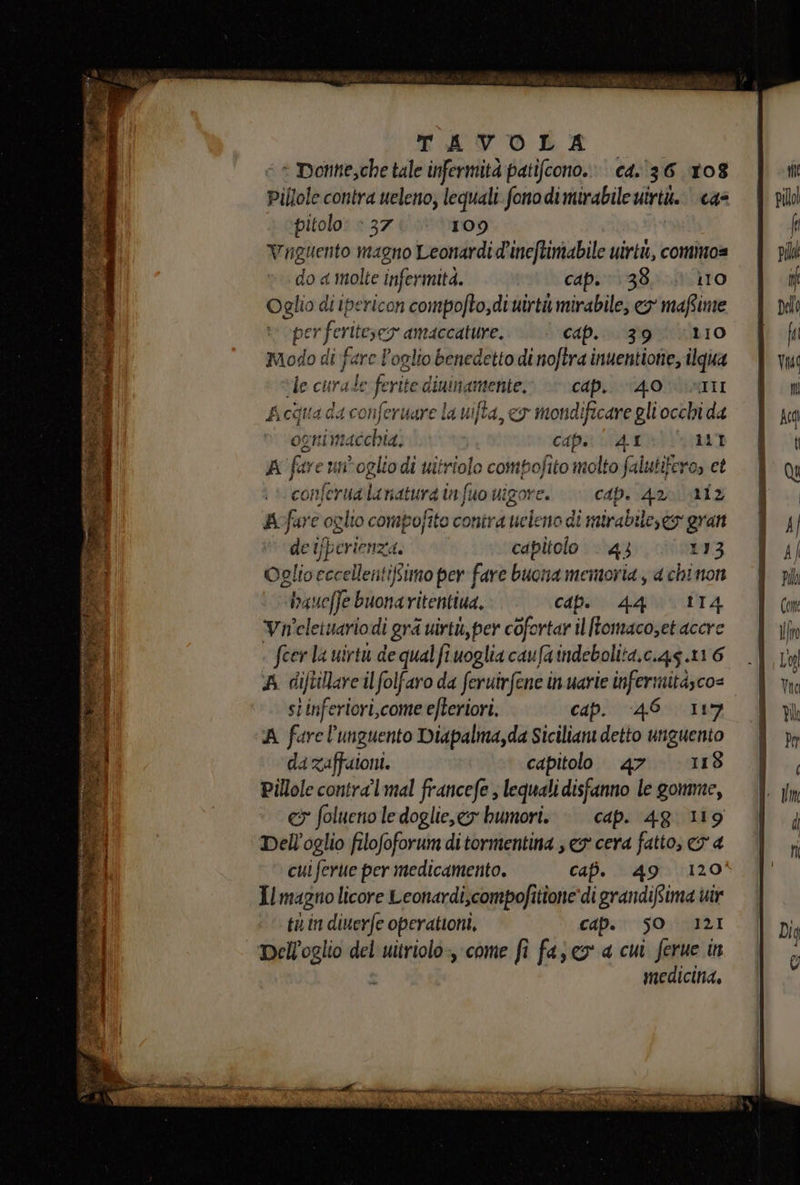 TAVOLA
Donne,che tale infermità patiſcono. ca. 36 108
Pillole contra ueleno, lequali ſono di mirabile uirtù. ca=
pitolo 37 109
Vnguento magno Leonardi d'ineſtimabile uirtù, commo=
do a molte infermità. cap. 38 110
Oglio di ipericon compoſto,di uirtù mirabile, & maßime
per ferite,& amaccature. cap. 39 110
Modo di fare l'oglio benedetto di noſtra inuentione, ilqua
le cura le ferite diuinamente. cap. 40 111
Acqua da conſeruare la uiſta, & mondificare gli occhi da
ogni macchia. cap. 41 111
A fare un'oglio di uitriolo compoſito molto ſalutifero, et
conſerua la natura in ſuo uigore. cap. 42 112
A fare oglio compoſito contra ueleno di mirabile,& gran
de iſperienza. capitolo 43 113
Oglio eccellentißimo per fare buona memoria, a chi non
haueſſe buona ritentiua. cap. 44 114
Vn'eletuario di grā uirtù,per cōfortar il ſtomaco,et accre
ſcer la uirtù de qual ſi uoglia cauſa indebolita.c.45.116
A diſtillare il ſolfaro da ſeruirſene in uarie infermità,co=
sì inferiori,come eſteriori. cap. 46 117
A fare l'unguento Diapalma,da Siciliani detto unguento
da zaffaioni. capitolo 47 118
Pillole contra'l mal franceſe, lequali disfanno le gomme,
& ſolueno le doglie,& humori. cap. 48 119
Dell'oglio filoſoforum di tormentina, & cera fatto, & a
cui ſerue per medicamento. cap. 49 120
Il magno licore Leonardi,compoſitione di grandißima uir
tù in diuerſe operationi. cap. 50 121
Dell'oglio del uitriolo, come ſi fa, & a cui ſerue in
medicina.